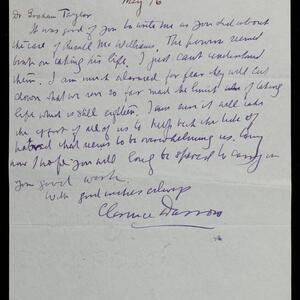 May 16
Dr Graham Taylor
It was good of you to write me as you did about
the case of Russell McWilliams. The powers seemed
bent on taking his life. I just can't understand
them. I am much alarmed for fear they will cut
down what we won so far made the limit of taking
life what is still eighteen. I am sure it will take
the effort of all of us to keep back the tide of
hatred that seems to be overwhelming us. any
how I hope you will long be spared to carry on
your good work.
With good wishes always
Clarence Darrow